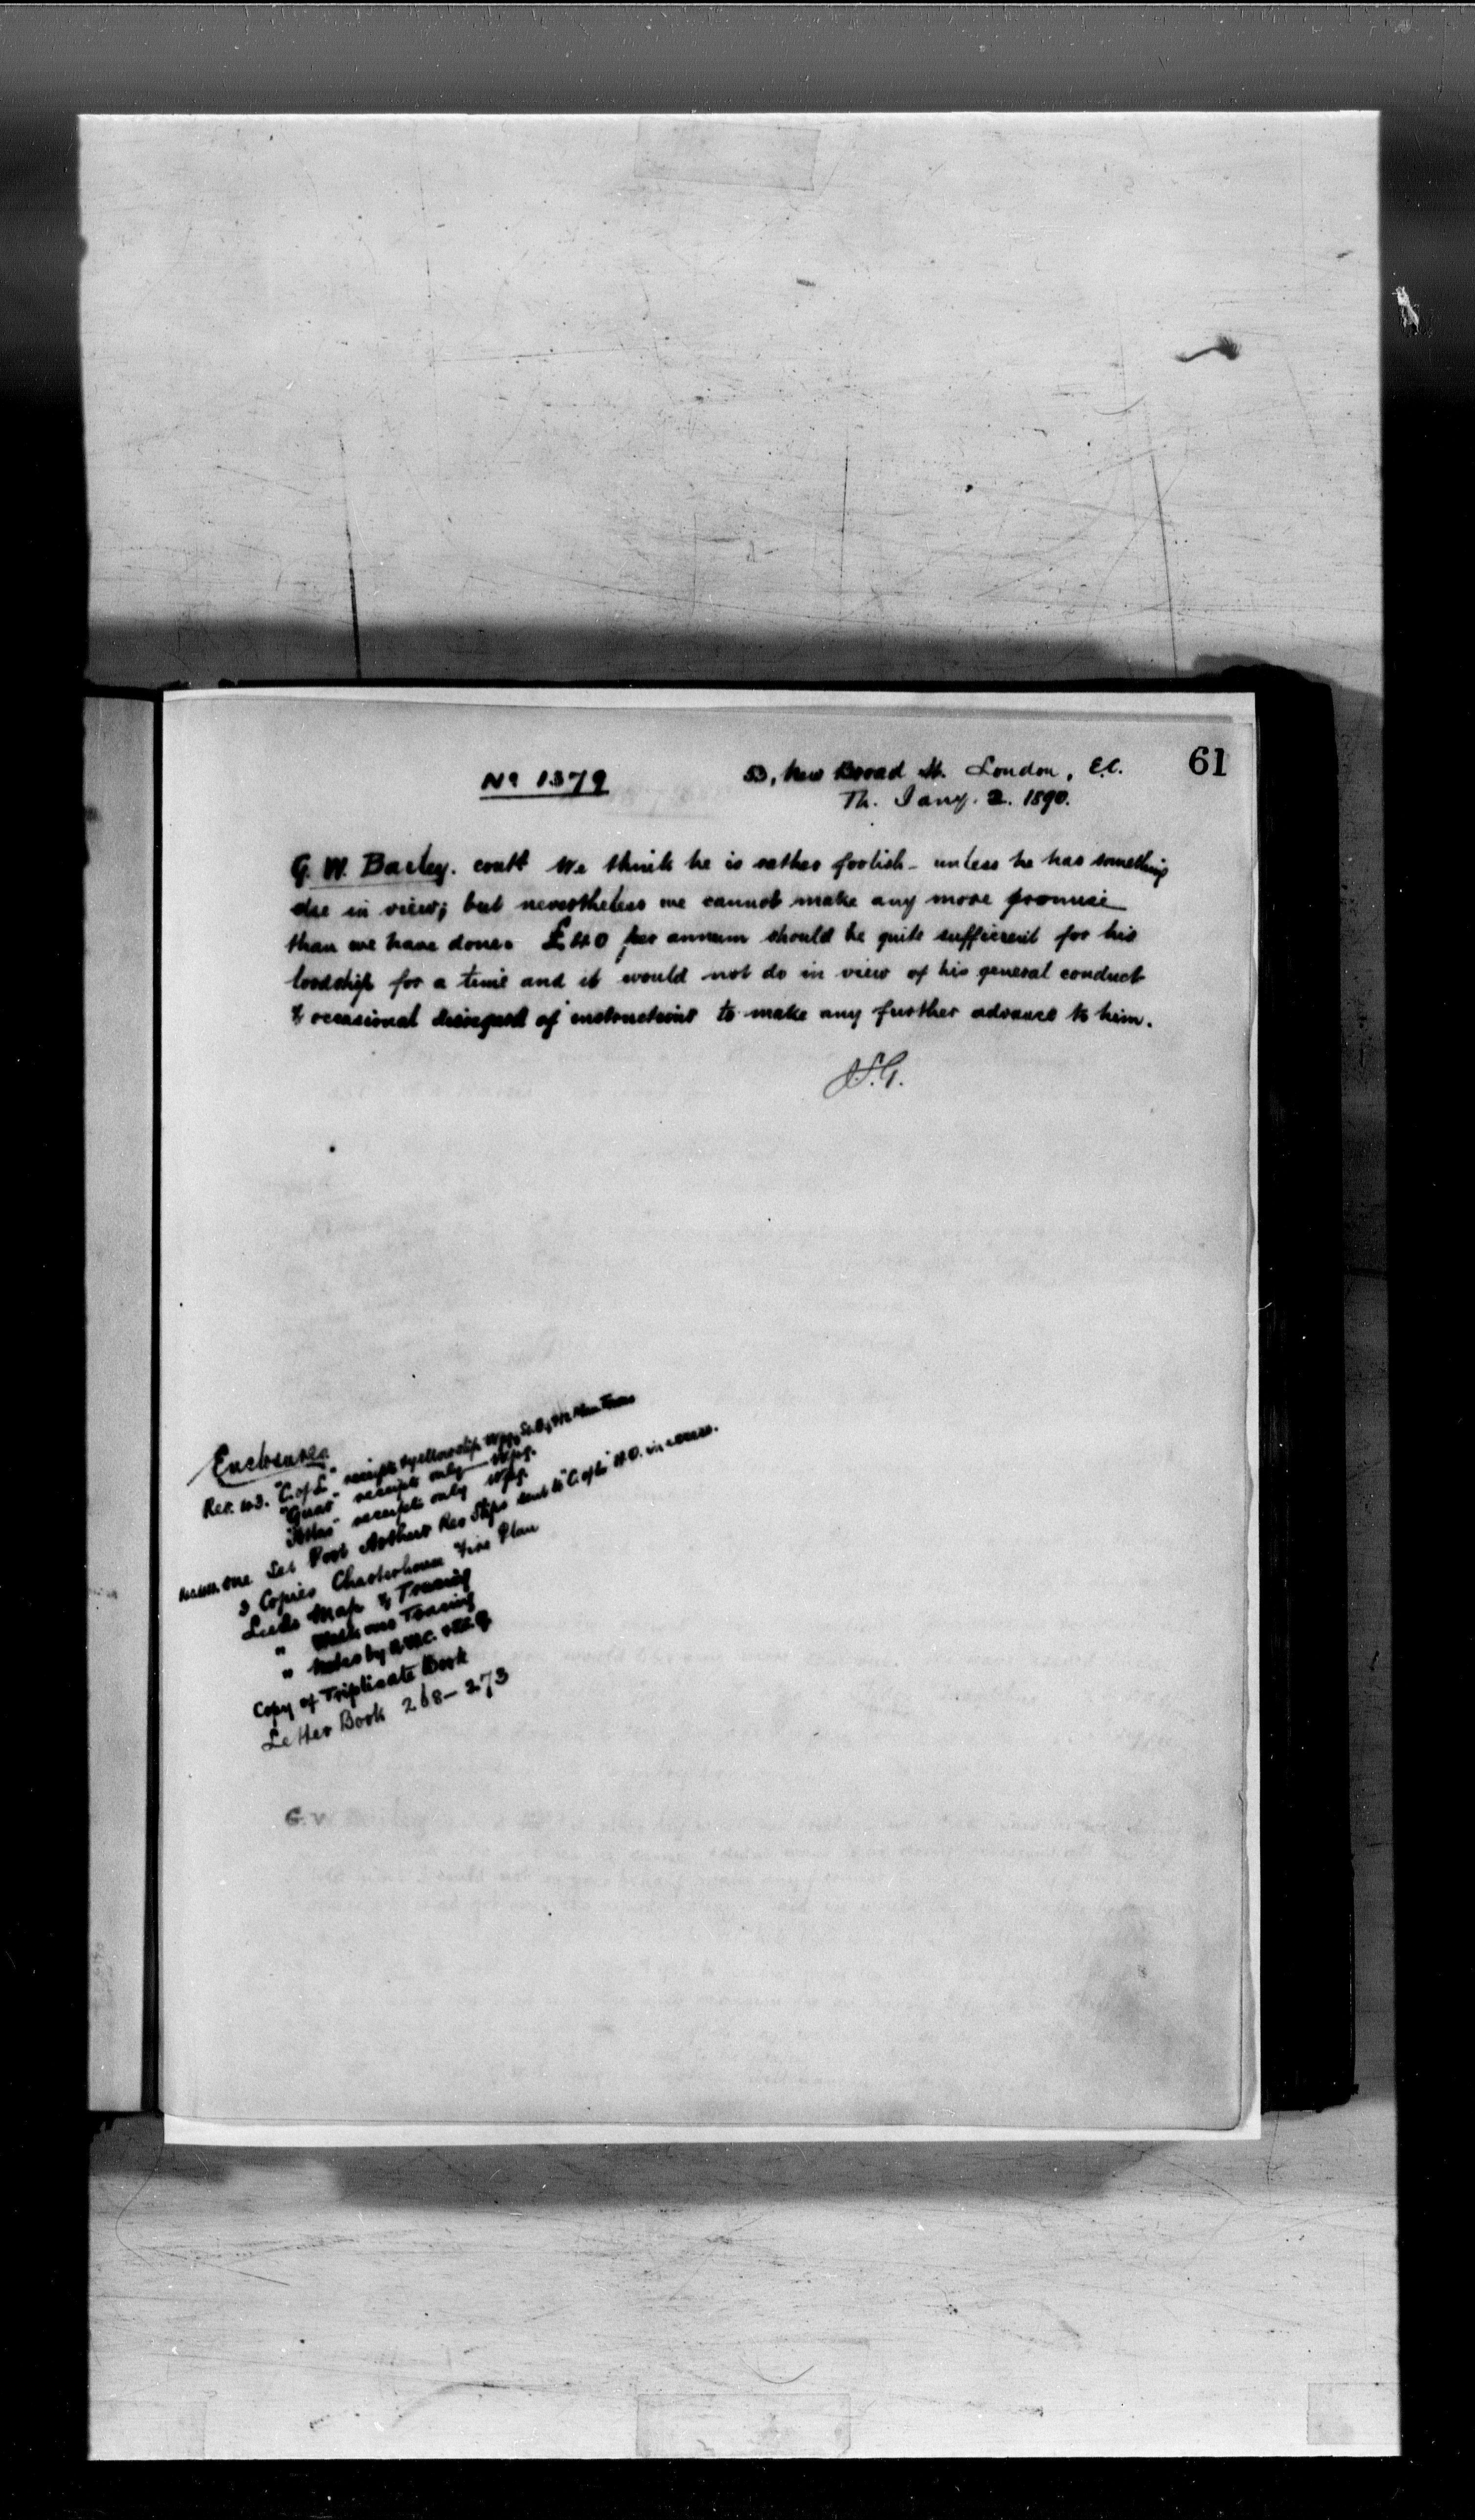 61
No 1379
53, New Broad St. London, E.C.
Th. Jany. 2. 1890.
G. W. Bailey. contd We think he is rather foolish - unless he has something
else in view; but nevertheless we cannot make any more promise
than we have done. £40 per annum should be quite sufficient for his
lordship for a time and it would not do in view of his general conduct
& occasional disregard of instructions to make any further advance to him.
Enclosures
Rec. "C. of L" receipts
"Guar" receipts only Wpg.
"Atlas" receipts only Wpg.
One Set Port Arthur Rev Slips sent to "C. of L" H.O. in
3 Copies Charterhouse Fire Plan
Leeds Map & Tracing
" Tracing
" Notes by
Copy of Triplicate Book
Letter Book 268-273
G. W